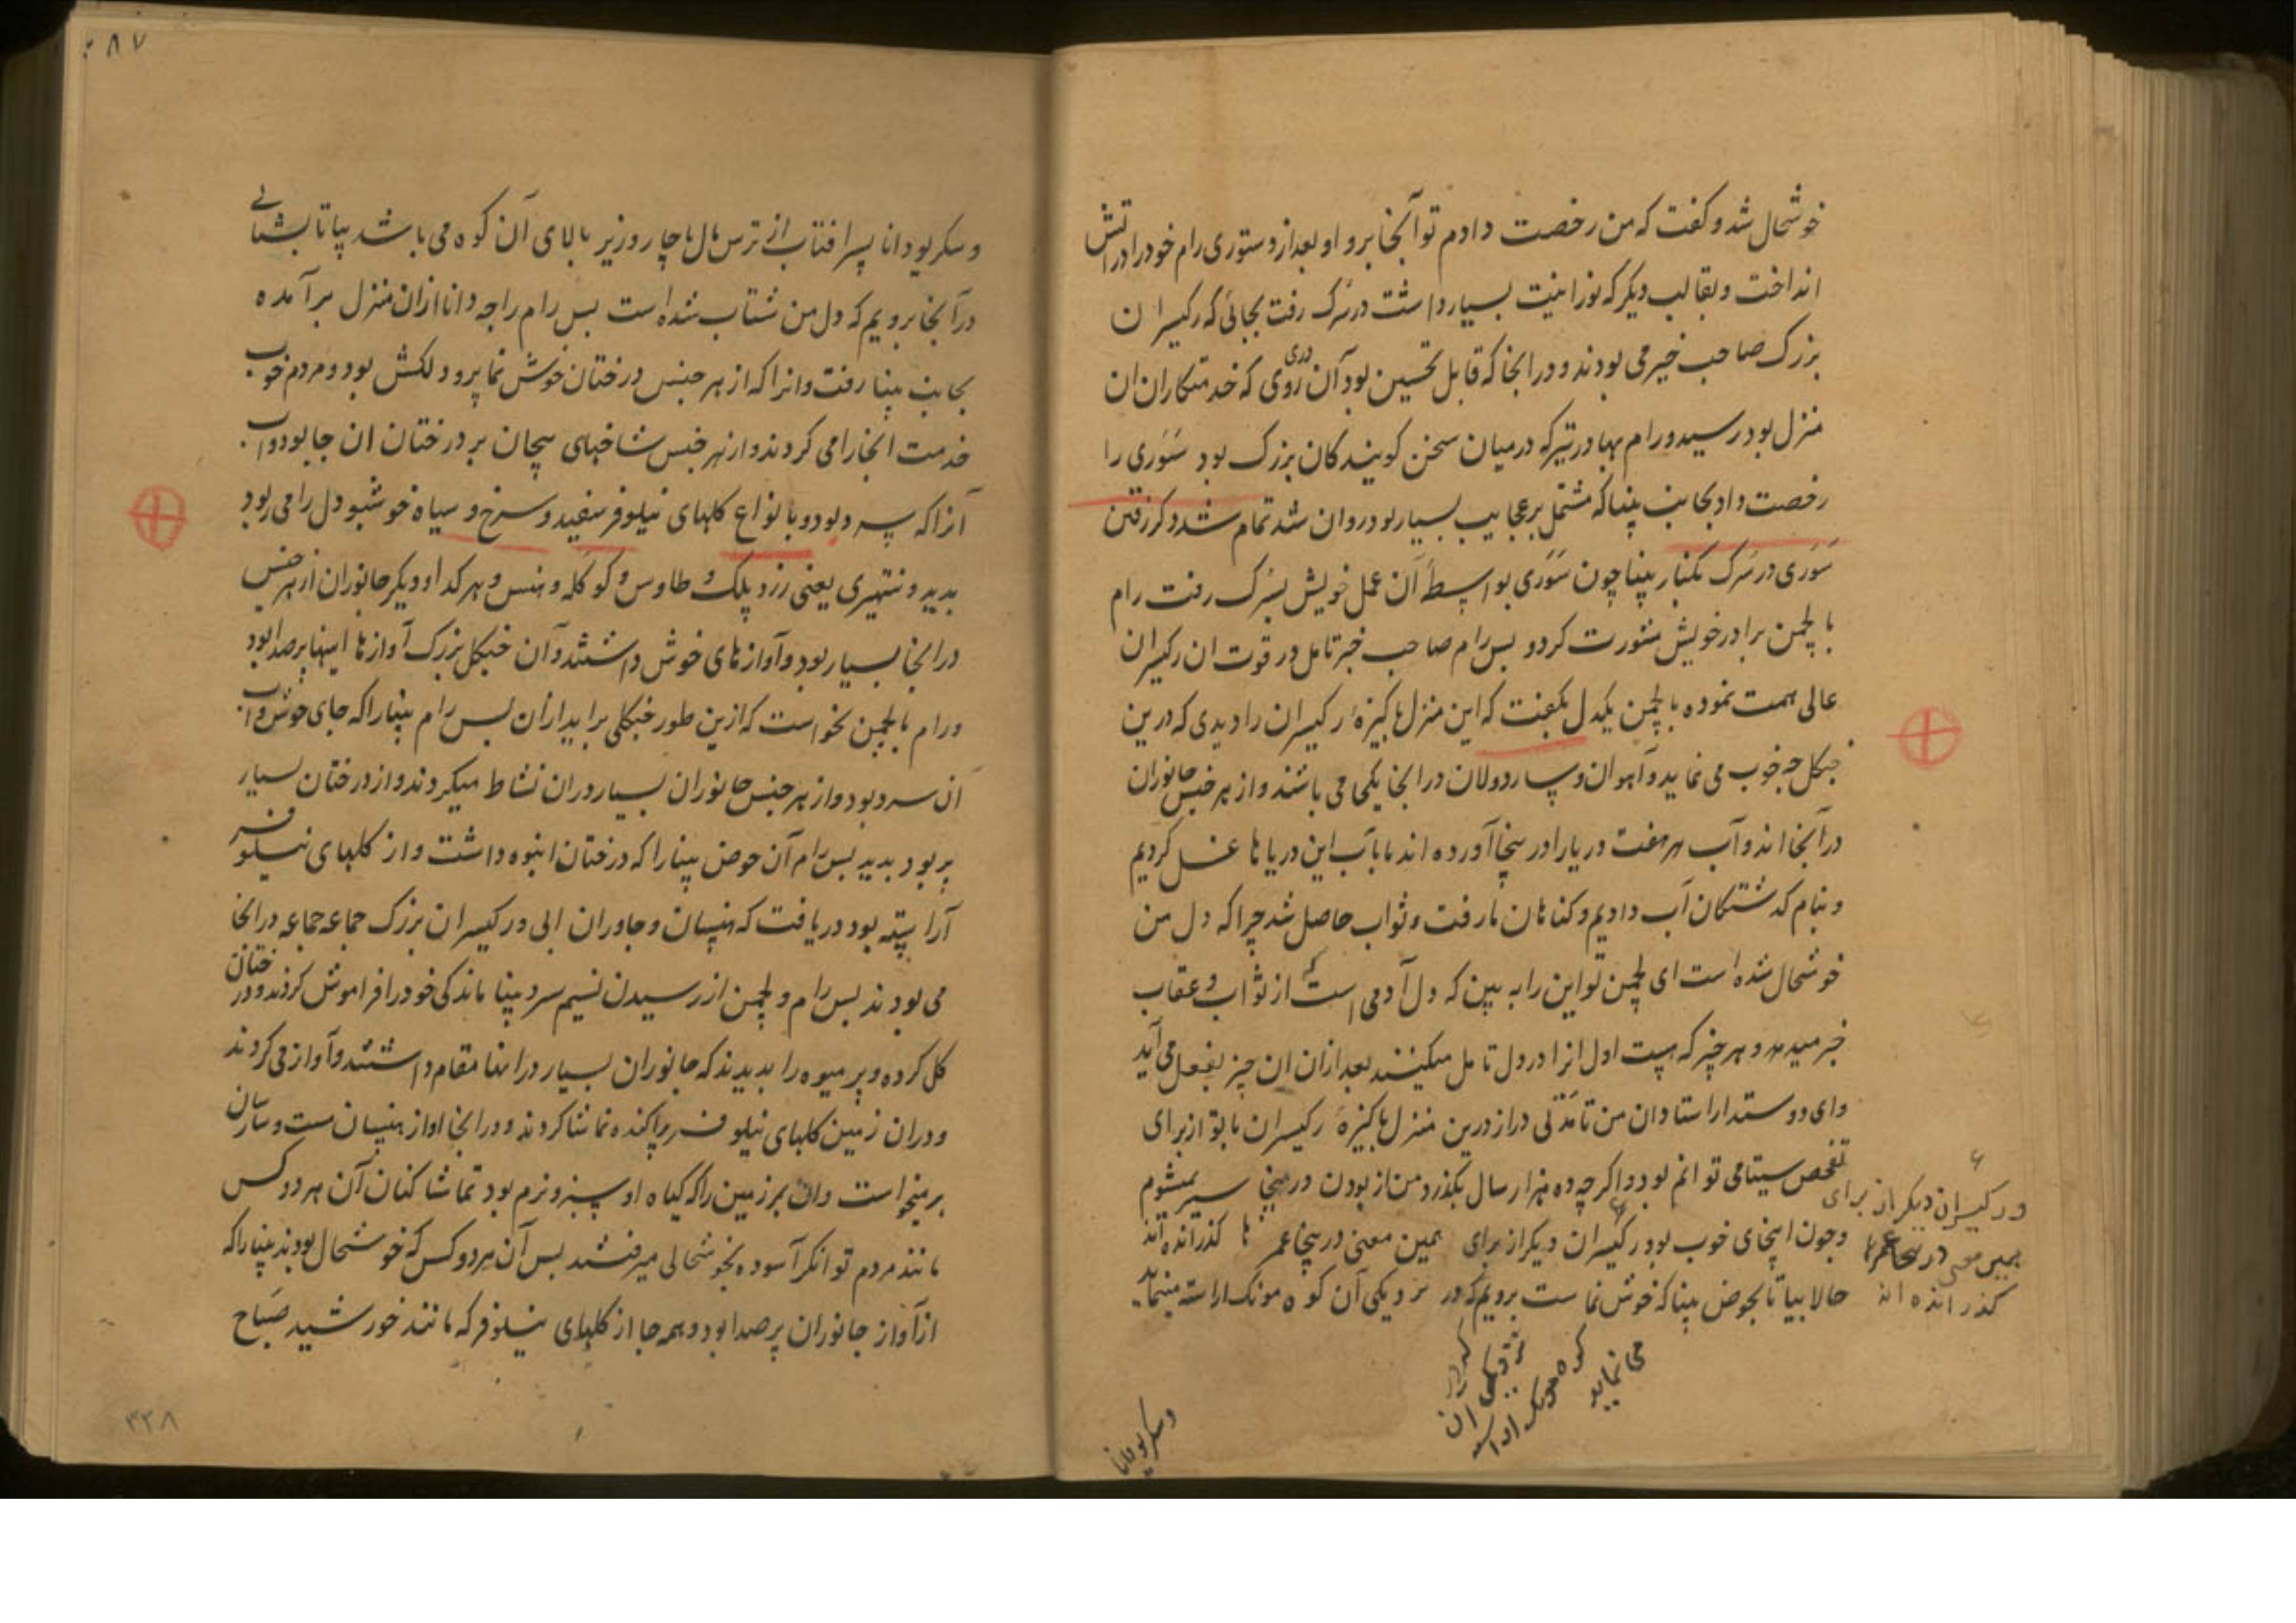 خوشحال شد و کفت که من رخصت دادم تو آنجا برو او بعد از دستوری رام خود را در اتش
انداخت و بقالب دیکر که نورانیت بسیار داشت در سُرک رفت بجائی که رکیسران
بزرک صاحب خیر می بودند و در انجا که قابل تحسین بود آن روی که خدمتکاران ان
منزل بود رسید و رام بهادر تیر که درمیان سخن کویندکان بزرک بود سَوَری را
رخصت داد بجانب پنپا که مشتمل بر عجایب بسیار بود روان شد تمام شد ذکر رفتن
سَوَری در سُرک بکنار پنپا چون سَوَری بواسطهٔ آن عمل خویش بسُرک رفت رام
با لچمن برادر خویش مشورت کرد و بس رام صاحب خیر تامل در قوت ان رکیسران
عالی همت نموده با لچمن یکدل بکفت که این منزل پاکیزهٔ رکیسران را دیدی که درین
جنکل چه خوب می نماید و آهوان و ساردولان در انجا یکجا می باشند و از هر جنس جانوران
در آنجا اند و آب هر هفت دریا را در ینجا آورده اند ما بآب این دریاها غسل کردیم
و بنام کذشتکان آب دادیم و کناهان ما رفت و ثواب حاصل شد چرا که دل من
خوشحال شده است ای لچمن تو این را به بین که دل آدمی است که از ثواب و عقاب
خبر میدهد و هر چیز که هست اول انرا در دل تامل میکنند بعد ازان ان چیز بفعل می آید
و ای دوستدار استادان من تا مدّتی دراز درین منزل پاکیزهٔ رکیسران با تو از برای
تفحص سیتا می توانم بود و اکرچه ده هزار سال بکذرد من از بودن در ینجا سیر نمیشوم
و چون اینجای خوب بود رکیسران دیکر از برای همین معنی در ینجا عمرها کذرانده اند
حالا بیا تا بحوض پنپا که خوش نما ست برویم که در نزدیکی آن کوه مونک اراسته مینماید
و رکیسران دیکر از برای
همین معنی در ینجا عمرها
کذرانده اند
که در
نزدیکی ان
کوه مونک اراسته
می نماید
و سکریو دانا
۸۷
و سکریو دانا پسر افتاب از ترس بال با چار وزیر بالای آن کوه می باشد بیا تا بشتابی
در آنجا برویم که دل من شتاب شده است بس رام راجه دانا ازان منزل برآمده
بجانب پنپا رفت و انرا که از هر جنس درختان خوش نما پر و دلکش بود و مردم خوب
خدمت انجا را می کردند و از هر جنس شاخهای پیچان بر درختان ان جا بود و اب
آنرا که سرد بود و با نواع کلهای نیلوفر سفید و سرخ و سیاه خوشبو دل را می ربود
بدید و تتهیری یعنی زرد پلک و طاوس و کوکله و هنس و هر کدا و دیکر جانوران از هر جنس
در انجا بسیار بود و آوازهای خوش داشتند و آن جنکل بزرک از آوازها اینها پر صدا بود
و رام با لچمن نخواست که ازین طور جنکلی براید ازان بس رام پنپا را که جای خوش و اب
آن سرد بود و از هر جنس جانوران بسیار دران نشاط میکردند و از درختان بسیار
پر بود بدید بس رام آن حوض پنپا را که درختان انبوه داشت و از کلهای نیلوفر
آراسته بود دریافت که هنسان و جاوران ابی و رکیسران بزرک جماعه جماعه در انجا
می بودند بس رام و لچمن از رسیدن نسیم سرد پنپا ماندکی خود را فراموش کردند و درختان
کل کرده و پر میوه را بدیدند که جانوران بسیار در انها مقام داشتند و آواز می کردند
و دران زمین کلهای نیلوفر پراکنده تماشا کردند و در انجا اواز هنسان مست و سارسان
برمیخواست و ان بر زمین را که کیاه او سبز و نرم بود تماشا کنان آن هر دو کس
مانند مردم توانکر آسوده بخوشحالی میرفتند بس آن هر دو کس که خوشحال بودند پنپا را که
از آواز جانوران پر صدا بود و همه جا از کلهای نیلوفر که مانند خورشید صَباح
۳۳۸